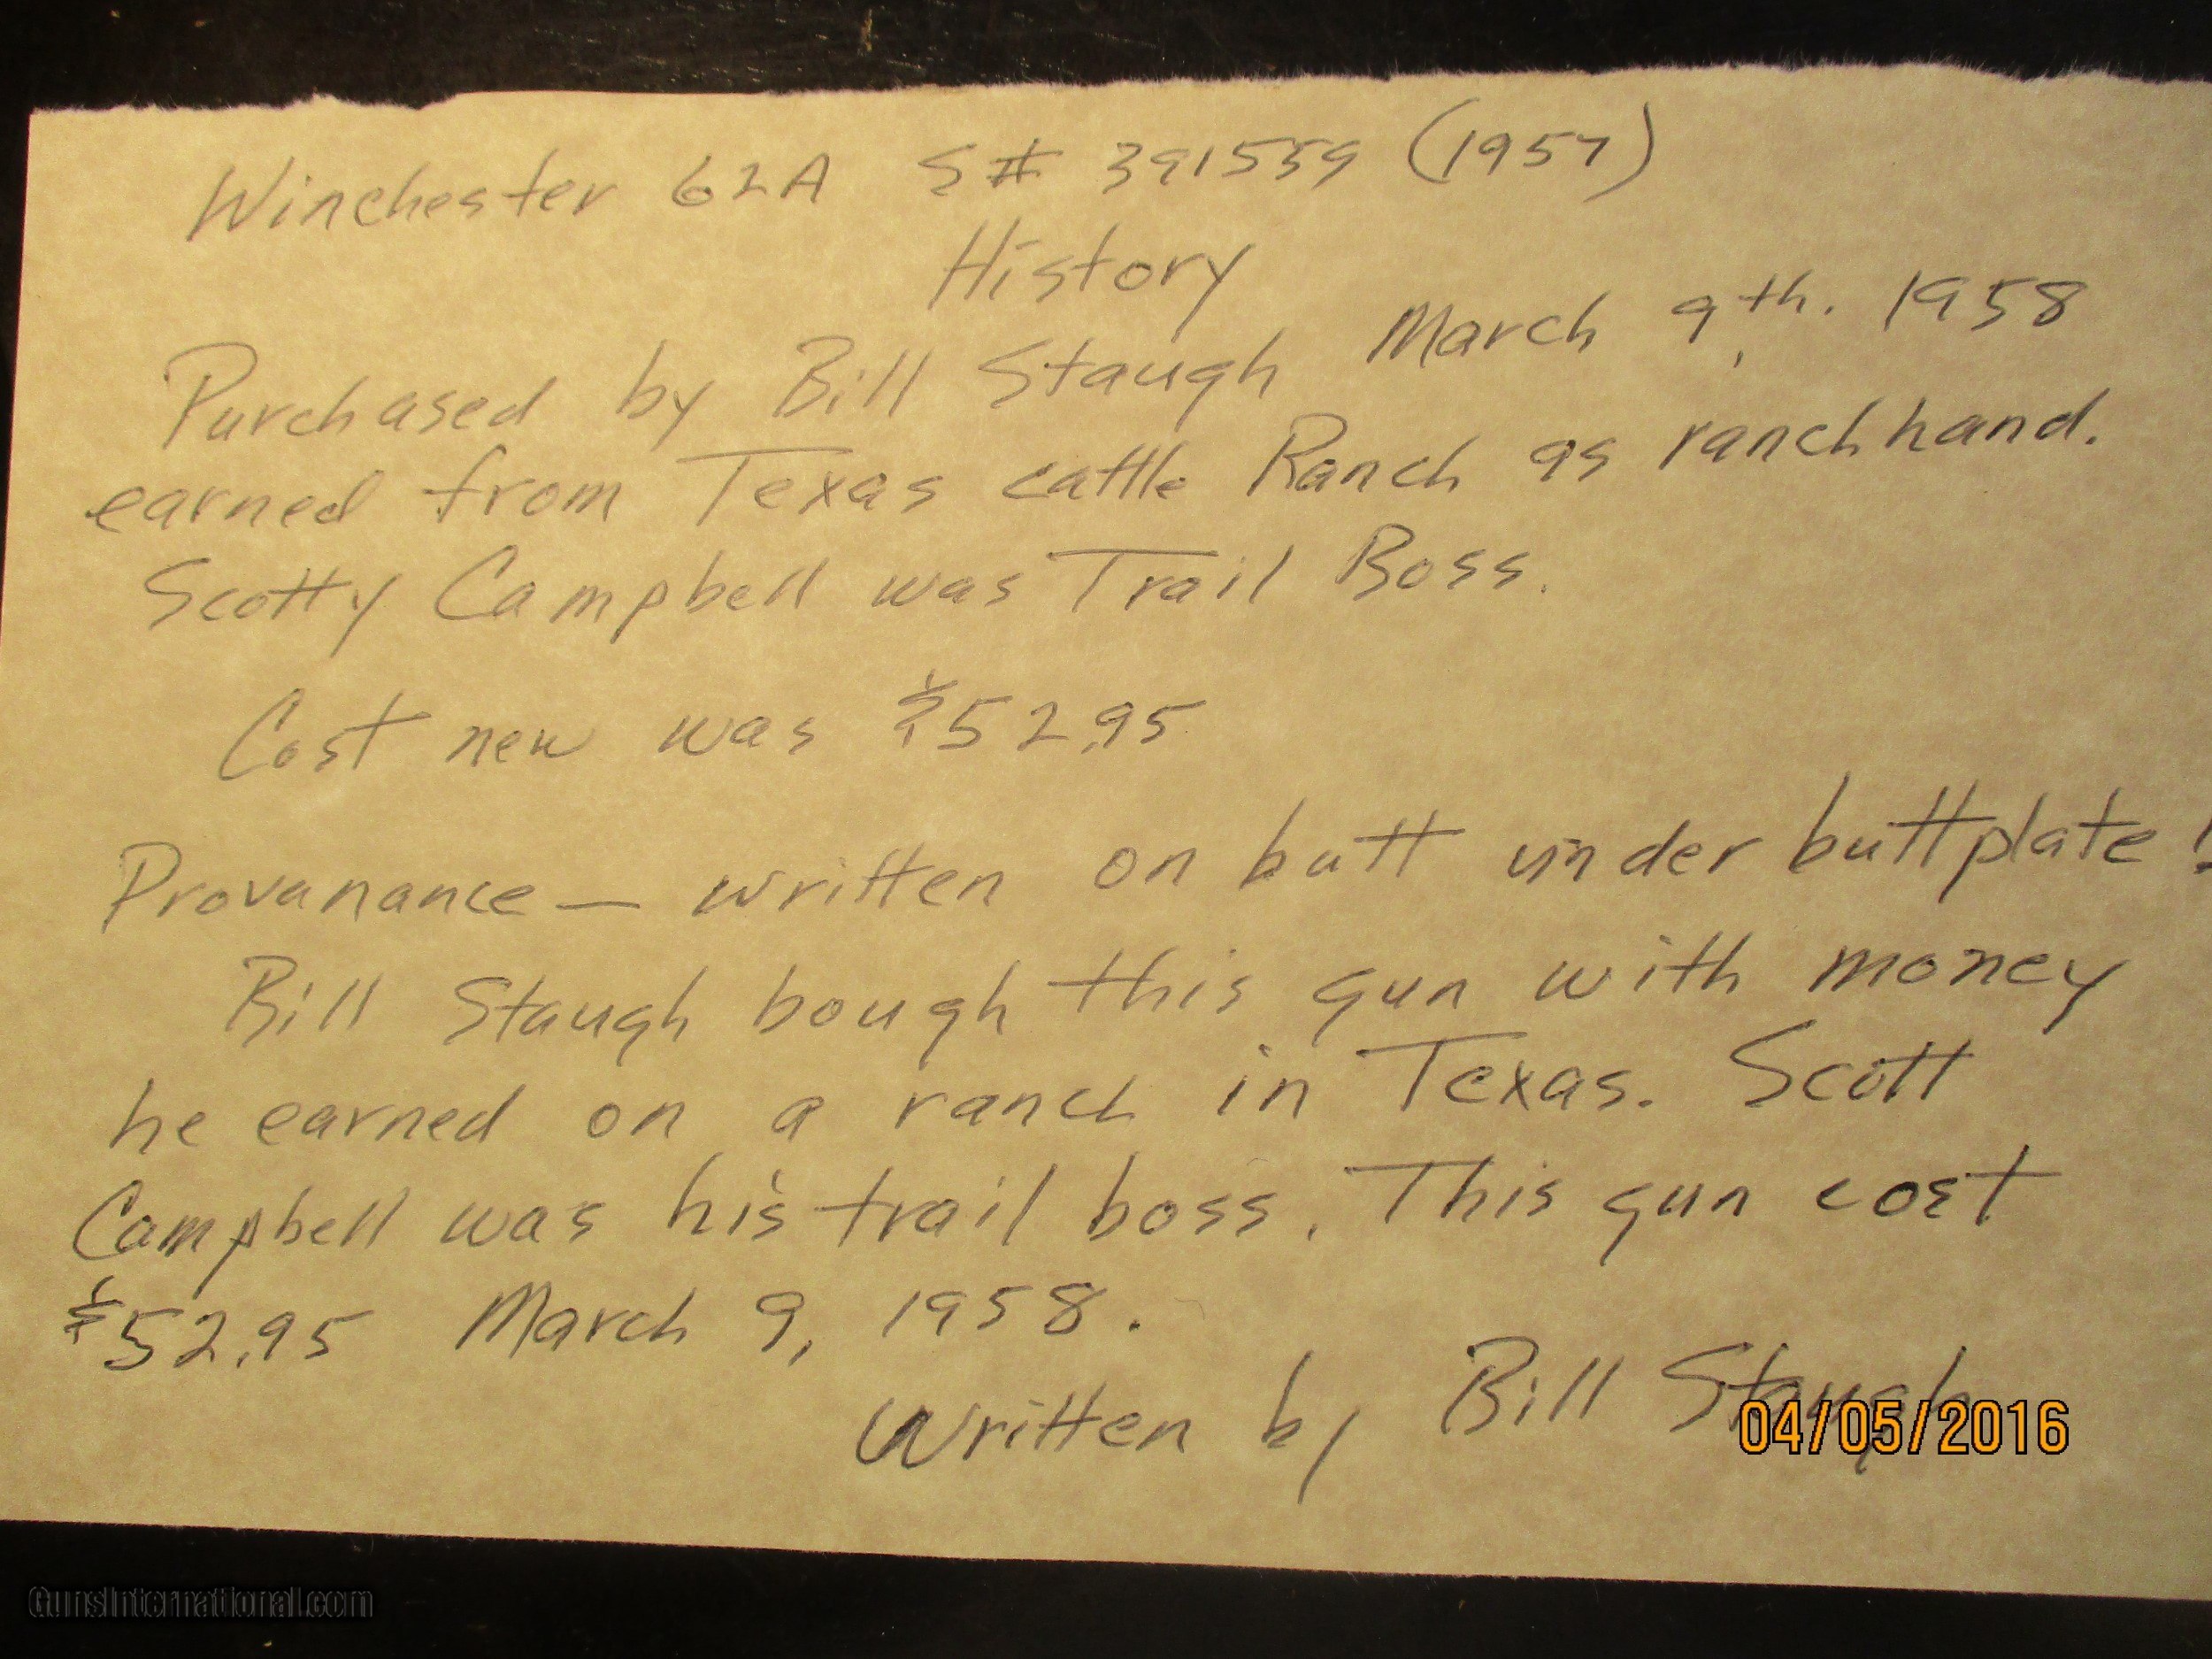 Winchester 62A S# 391559 (1957)
History
Purchased by Bill Staugh March 9th. 1958
earned from Texas cattle Ranch as ranchhand.
Scotty Campbell was Trail Boss.
Cost new was $52.95
Provanance — written on butt under buttplate!
Bill Staugh bough this gun with money
he earned on a ranch in Texas. Scott
Campbell was his trail boss. This gun cost
$52.95 March 9, 1958.
Written by Bill Staugh
04/05/2016
GunsInternational.com